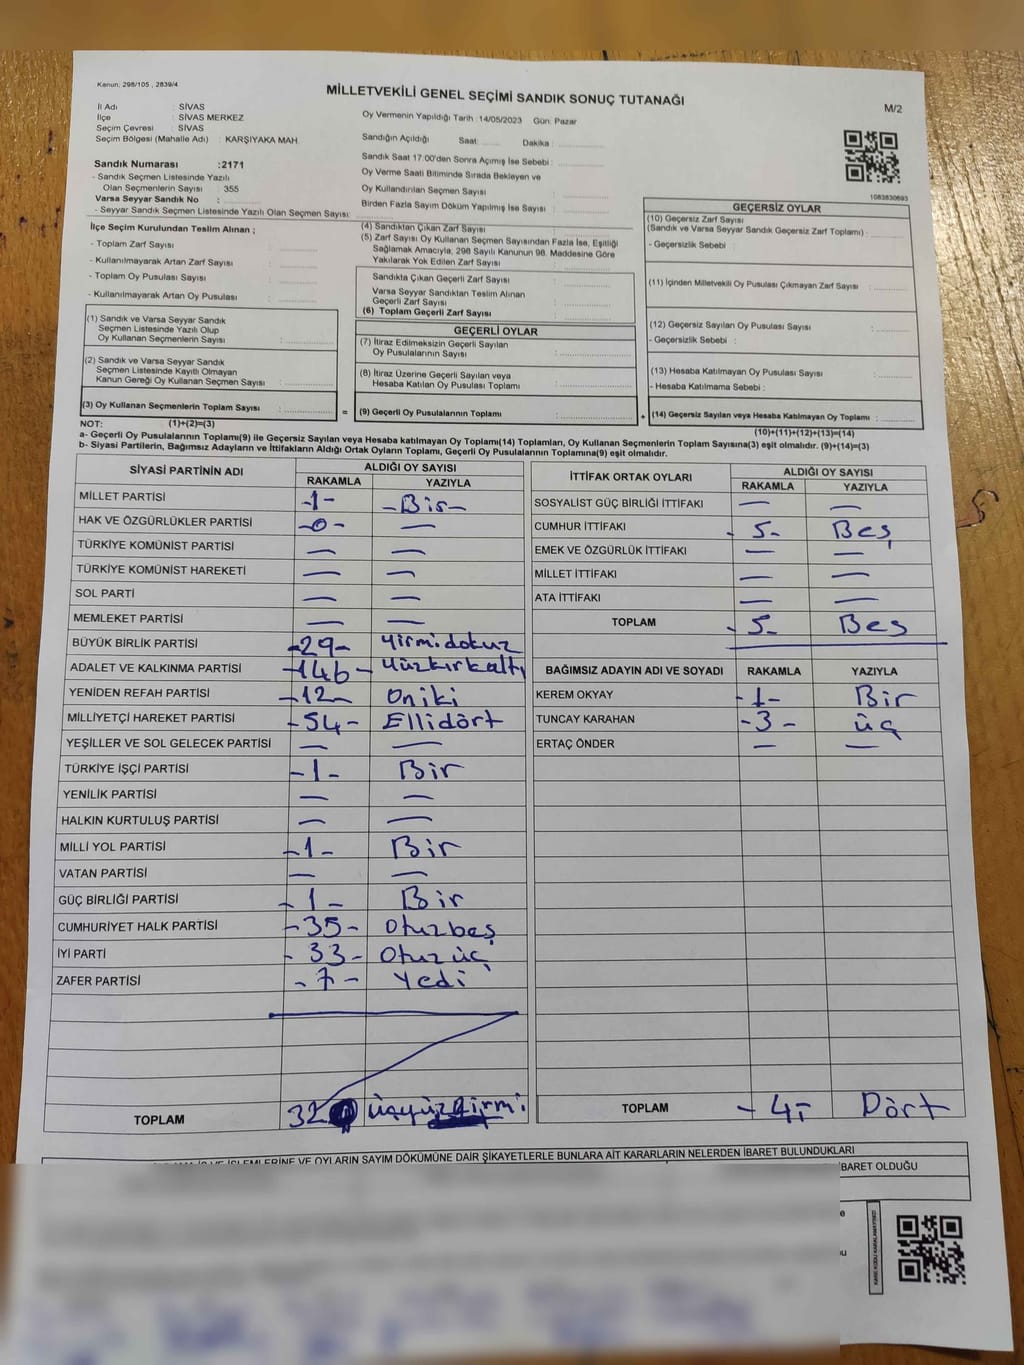 Kanun: 298/105 , 2839/4
MİLLETVEKİLİ GENEL SEÇİMİ SANDIK SONUÇ TUTANAĞI
M/2
İl Adı : SİVAS
İlçe : SİVAS MERKEZ
Seçim Çevresi : SİVAS
Seçim Bölgesi (Mahalle Adı) : KARŞIYAKA MAH.
Sandık Numarası :2171
- Sandık Seçmen Listesinde Yazılı
Olan Seçmenlerin Sayısı : 355
Varsa Seyyar Sandık No :
- Seyyar Sandık Seçmen Listesinde Yazılı Olan Seçmen Sayısı:
Oy Vermenin Yapıldığı Tarih : 14/05/2023 Gün: Pazar
Sandığın Açıldığı Saat: Dakika :
Sandık Saat 17.00'den Sonra Açılmış İse Sebebi :
Oy Verme Saati Bitiminde Sırada Bekleyen ve
Oy Kullandırılan Seçmen Sayısı :
Birden Fazla Sayım Döküm Yapılmış İse Sayısı :
1083830693
İlçe Seçim Kurulundan Teslim Alınan ;
- Toplam Zarf Sayısı :
- Kullanılmayarak Artan Zarf Sayısı :
- Toplam Oy Pusulası Sayısı :
- Kullanılmayarak Artan Oy Pusulası :
(1) Sandık ve Varsa Seyyar Sandık
Seçmen Listesinde Yazılı Olup
Oy Kullanan Seçmenlerin Sayısı :
(2) Sandık ve Varsa Seyyar Sandık
Seçmen Listesinde Kayıtlı Olmayan
Kanun Gereği Oy Kullanan Seçmen Sayısı :
(3) Oy Kullanan Seçmenlerin Toplam Sayısı :
(4) Sandıktan Çıkan Zarf Sayısı :
(5) Zarf Sayısı Oy Kullanan Seçmen Sayısından Fazla İse, Eşitliği
Sağlamak Amacıyla, 298 Sayılı Kanunun 98. Maddesine Göre
Yakılarak Yok Edilen Zarf Sayısı :
Sandıkta Çıkan Geçerli Zarf Sayısı :
Varsa Seyyar Sandıktan Teslim Alınan
Geçerli Zarf Sayısı :
(6) Toplam Geçerli Zarf Sayısı :
GEÇERLİ OYLAR
(7) İtiraz Edilmeksizin Geçerli Sayılan
Oy Pusulalarının Sayısı :
(8) İtiraz Üzerine Geçerli Sayılan veya
Hesaba Katılan Oy Pusulası Toplamı :
= (9) Geçerli Oy Pusulalarının Toplamı :
GEÇERSİZ OYLAR
(10) Geçersiz Zarf Sayısı
(Sandık ve Varsa Seyyar Sandık Geçersiz Zarf Toplamı) :
- Geçersizlik Sebebi :
(11) İçinden Milletvekili Oy Pusulası Çıkmayan Zarf Sayısı :
(12) Geçersiz Sayılan Oy Pusulası Sayısı :
- Geçersizlik Sebebi :
(13) Hesaba Katılmayan Oy Pusulası Sayısı :
- Hesaba Katılmama Sebebi :
+ (14) Geçersiz Sayılan veya Hesaba Katılmayan Oy Toplamı :
NOT: (1)+(2)=(3) (10)+(11)+(12)+(13)=(14)
a- Geçerli Oy Pusulalarının Toplamı(9) ile Geçersiz Sayılan veya Hesaba katılmayan Oy Toplamı(14) Toplamları, Oy Kullanan Seçmenlerin Toplam Sayısına(3) eşit olmalıdır. (9)+(14)=(3)
b- Siyasi Partilerin, Bağımsız Adayların ve İttifakların Aldığı Ortak Oyların Toplamı, Geçerli Oy Pusulalarının Toplamına(9) eşit olmalıdır.
SİYASİ PARTİNİN ADI ALDIĞI OY SAYISI
RAKAMLA YAZIYLA
MİLLET PARTİSİ -1- -Bir-
HAK VE ÖZGÜRLÜKLER PARTİSİ -0- —
TÜRKİYE KOMÜNİST PARTİSİ — —
TÜRKİYE KOMÜNİST HAREKETİ — —
SOL PARTİ — —
MEMLEKET PARTİSİ — —
BÜYÜK BİRLİK PARTİSİ -29- Yirmidokuz
ADALET VE KALKINMA PARTİSİ -146- Yüzkırkaltı
YENİDEN REFAH PARTİSİ -12- Oniki
MİLLİYETÇİ HAREKET PARTİSİ -54- Ellidört
YEŞİLLER VE SOL GELECEK PARTİSİ — —
TÜRKİYE İŞÇİ PARTİSİ -1- Bir
YENİLİK PARTİSİ — —
HALKIN KURTULUŞ PARTİSİ — —
MİLLİ YOL PARTİSİ -1- Bir
VATAN PARTİSİ — —
GÜÇ BİRLİĞİ PARTİSİ -1- Bir
CUMHURİYET HALK PARTİSİ -35- Otuzbeş
İYİ PARTİ -33- Otuzüç
ZAFER PARTİSİ -7- Yedi
TOPLAM 32 üçyüzyirmi
İTTİFAK ORTAK OYLARI ALDIĞI OY SAYISI
RAKAMLA YAZIYLA
SOSYALİST GÜÇ BİRLİĞİ İTTİFAKI — —
CUMHUR İTTİFAKI -5- Beş
EMEK VE ÖZGÜRLÜK İTTİFAKI — —
MİLLET İTTİFAKI — —
ATA İTTİFAKI — —
TOPLAM -5- Beş
BAĞIMSIZ ADAYIN ADI VE SOYADI RAKAMLA YAZIYLA
KEREM OKYAY -1- Bir
TUNCAY KARAHAN -3- üç
ERTAÇ ÖNDER — —
TOPLAM -4- Dört
İŞLEMLERİNE VE OYLARIN SAYIM DÖKÜMÜNE DAİR ŞİKAYETLERLE BUNLARA AİT KARARLARIN NELERDEN İBARET BULUNDUKLARI
İBARET OLDUĞU